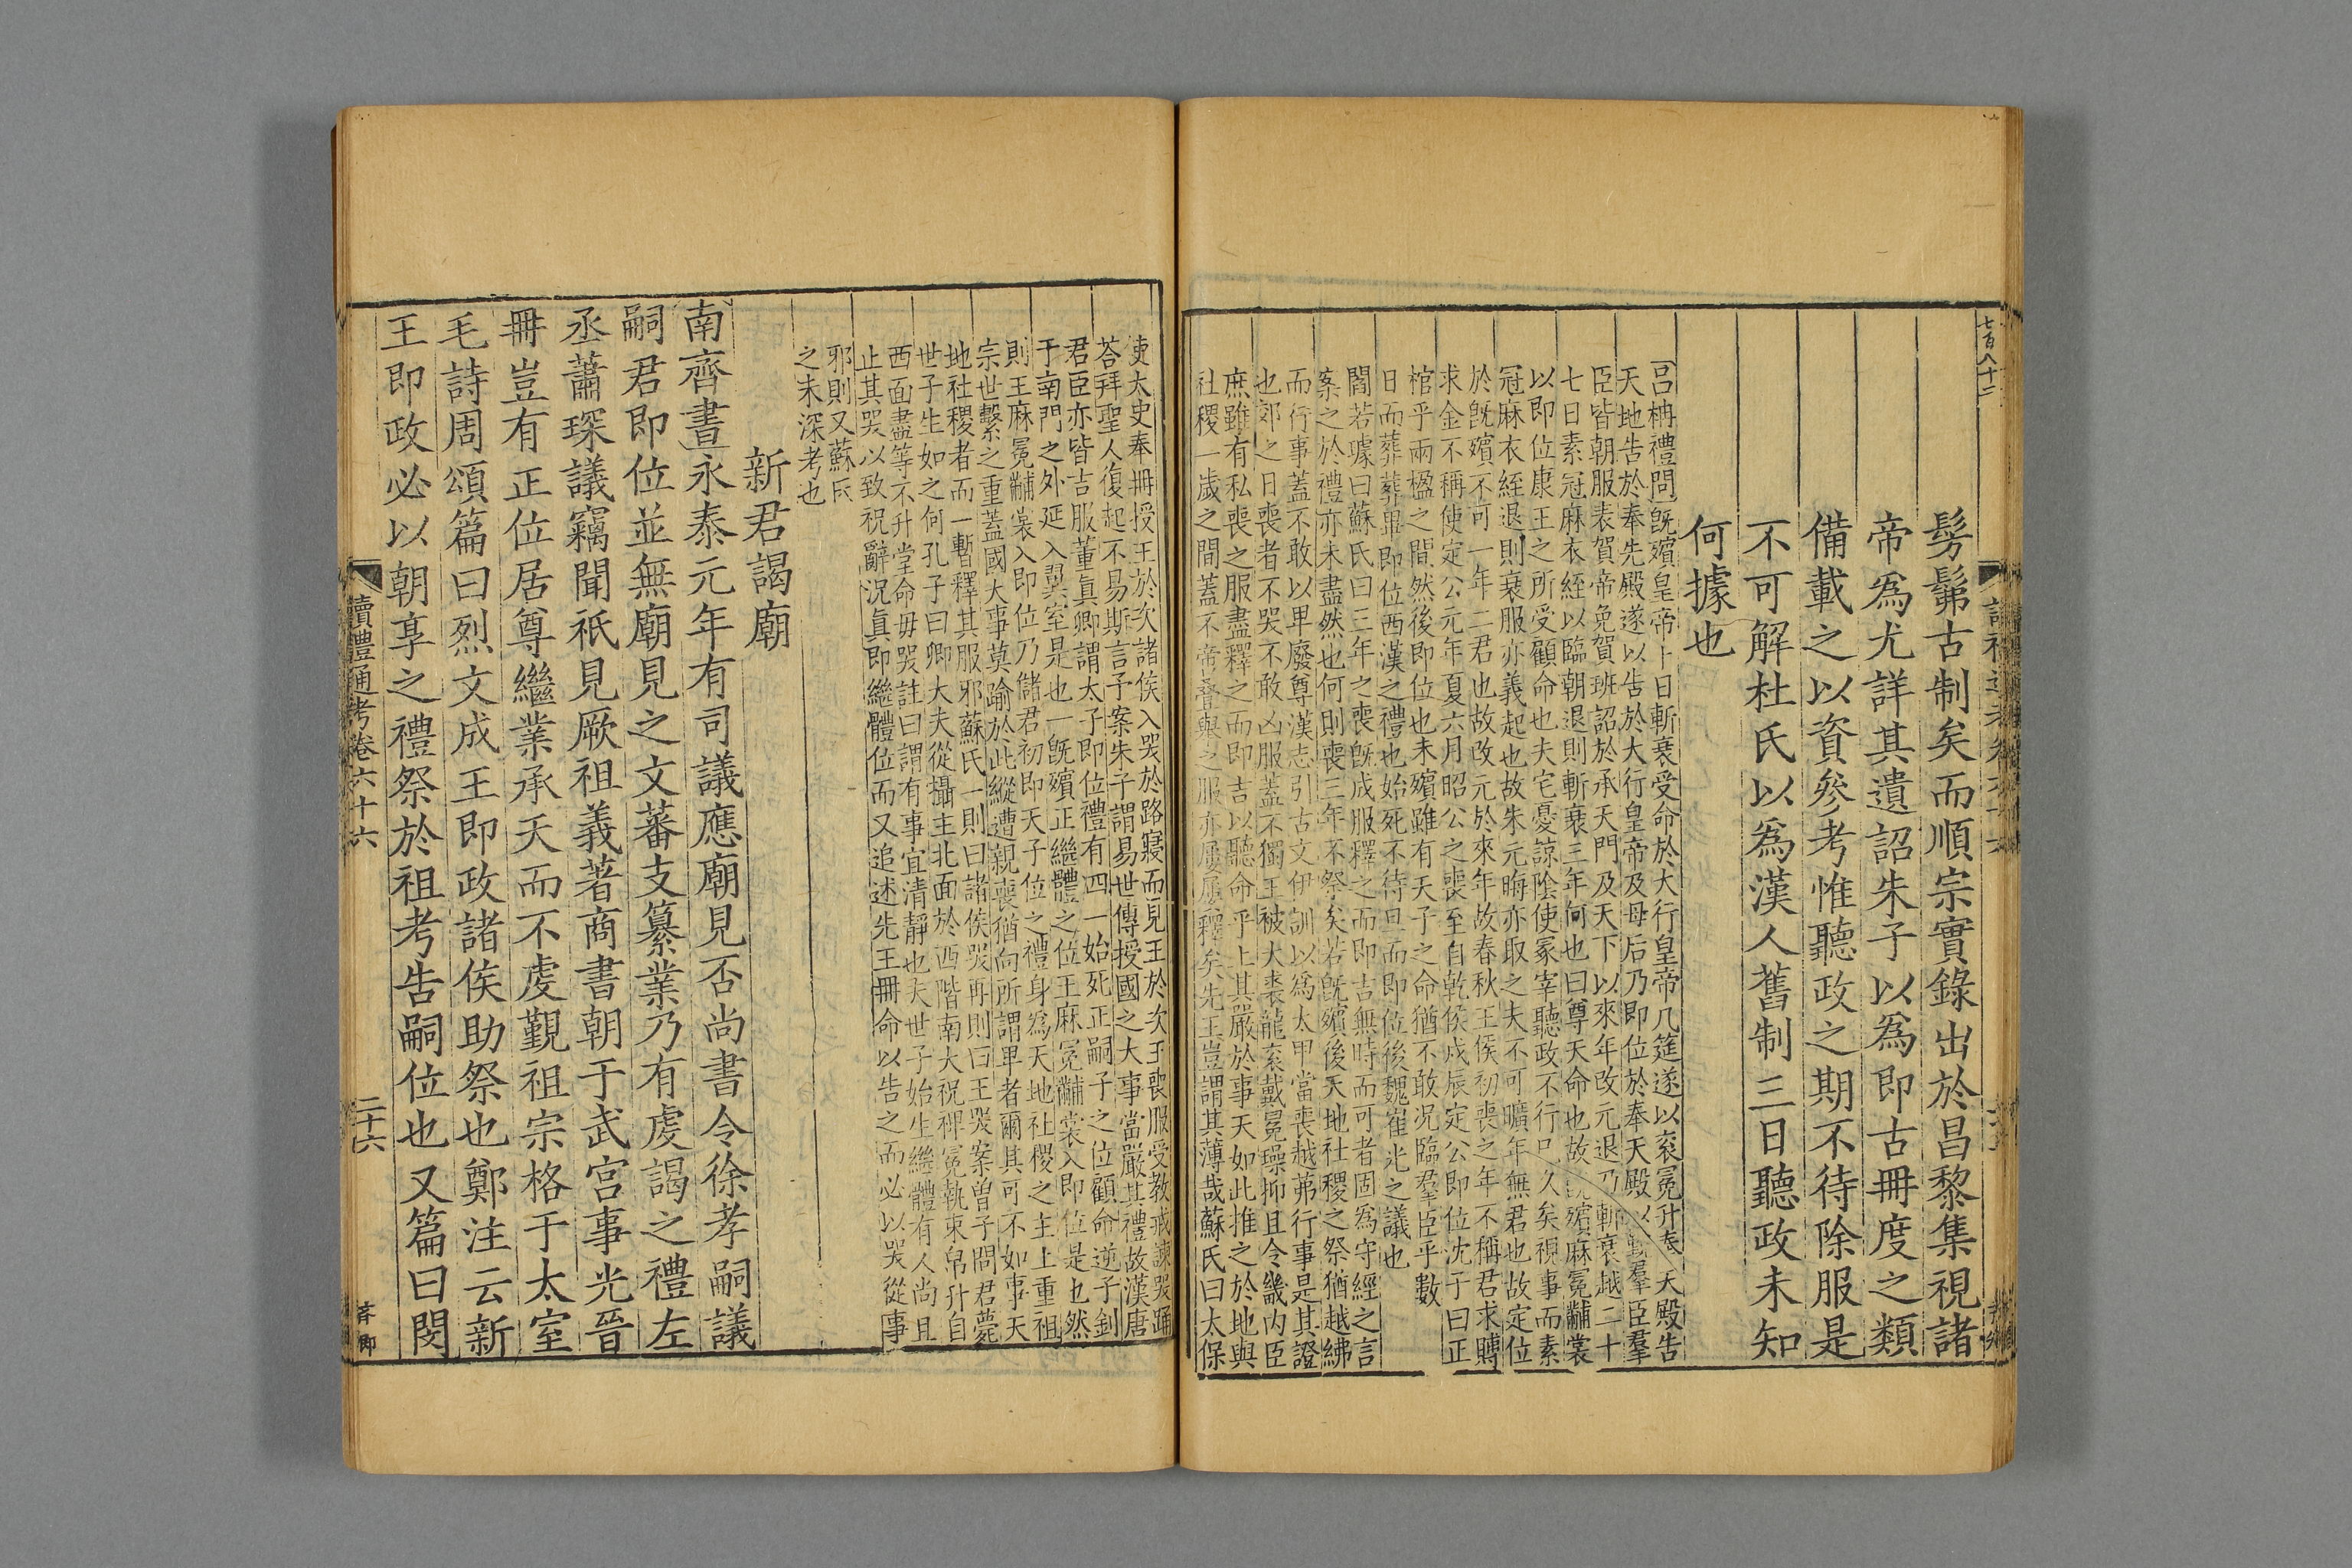 七百八十二
髣髴古制矣而順宗實錄出於昌黎集視諸
帝爲尤詳其遺詔朱子以爲即古冊度之類
備載之以資參考惟聽政之期不待除服是
不可解杜氏以爲漢人舊制三日聽政未知
何據也
呂柟禮問旣殯皇帝十日斬衰受命於大行皇帝几筵遂以衮冕升奉天殿告
天地告於奉先殿遂以告於大行皇帝及母后乃即位於奉天殿以羣臣羣
臣皆朝服表賀帝免賀班詔於承天門及天下以來年改元退乃斬衰越二十
七日素冠麻衣絰以臨朝退則斬衰三年何也曰尊天命也故旣殯麻冕黼裳
以即位康王之所受顧命也夫宅憂諒陰使冢宰聽政不行已久矣視事而素
冠麻衣絰退則衰服亦義起也故朱元晦亦取之夫不可曠年無君也故定位
於旣殯不可一年二君也故改元於來年故春秋王侯初喪之年不稱君求賻
求金不稱使定公元年夏六月昭公之喪至自乾侯戊辰定公即位沈子曰正
棺乎兩楹之間然後即位也未殯雖有天子之命猶不敢况臨羣臣乎數
日而葬葬畢即位西漢之禮也始死不待旦而即位後魏崔光之議也
閻若璩曰蘇氏曰三年之喪旣成服釋之而即吉無時而可者固爲守經之言
案之於禮亦未盡然也何則喪三年不祭矣若旣殯後天地社稷之祭猶越紼
而行事蓋不敢以卑廢尊漢志引古文伊訓以爲太甲當喪越茀行事是其證
也郊之日喪者不哭不敢凶服蓋不獨王被大裘龍衮戴冕璪抑且令畿內臣
庶雖有私喪之服盡釋之而即吉以聽命乎上其嚴於事天如此推之於地與
社稷一歲之間蓋不啻衰與之服亦屢屢釋矣先王豈謂其薄哉蘇氏曰太保
使太史奉冊授王於次諸侯入哭於路寢而見王於次王喪服受教戒諫哭踊
荅拜聖人復起不易斯言予案朱子謂易世傳授國之大事當嚴其禮故漢唐
君臣亦皆吉服董眞卿謂太子即位禮有四一始死正嗣子之位顧命逆子釗
于南門之外延入翼室是也一旣殯正繼體之位王麻冕黼裳入即位是也然
則王麻冕黼裳入即位乃儲君初即天子位之禮身爲天地社稷之主上重祖
宗世繫之重蓋國大事莫踰於此縱遭親喪猶向所謂卑者爾其可不如事天
地社稷者而一暫釋其服邪蘇氏一則曰諸侯哭再則曰王哭案曾子問君薨
世子生如之何孔子曰卿大夫從攝主北面於西階南大祝裨冕執束帛升自
西面盡等不升堂命毋哭註曰謂有事宜清靜也夫世子始生繼體有人尚且
止其哭以致祝辭况眞即繼體位而又追述先王冊命以告之而必以哭從事
邪則又蘇氏
之未深考也
新君謁廟
南齊書永泰元年有司議應廟見否尚書令徐孝嗣議
嗣君即位並無廟見之文蕃支纂業乃有虔謁之禮左
丞蕭琛議竊聞祇見厥祖義著商書朝于武宮事光晉
冊豈有正位居尊繼業承天而不虔覲祖宗格于太室
毛詩周頌篇曰烈文成王即政諸侯助祭也鄭注云新
王即政必以朝享之禮祭於祖考告嗣位也又篇曰閔
讀禮通考卷六十六
二十六